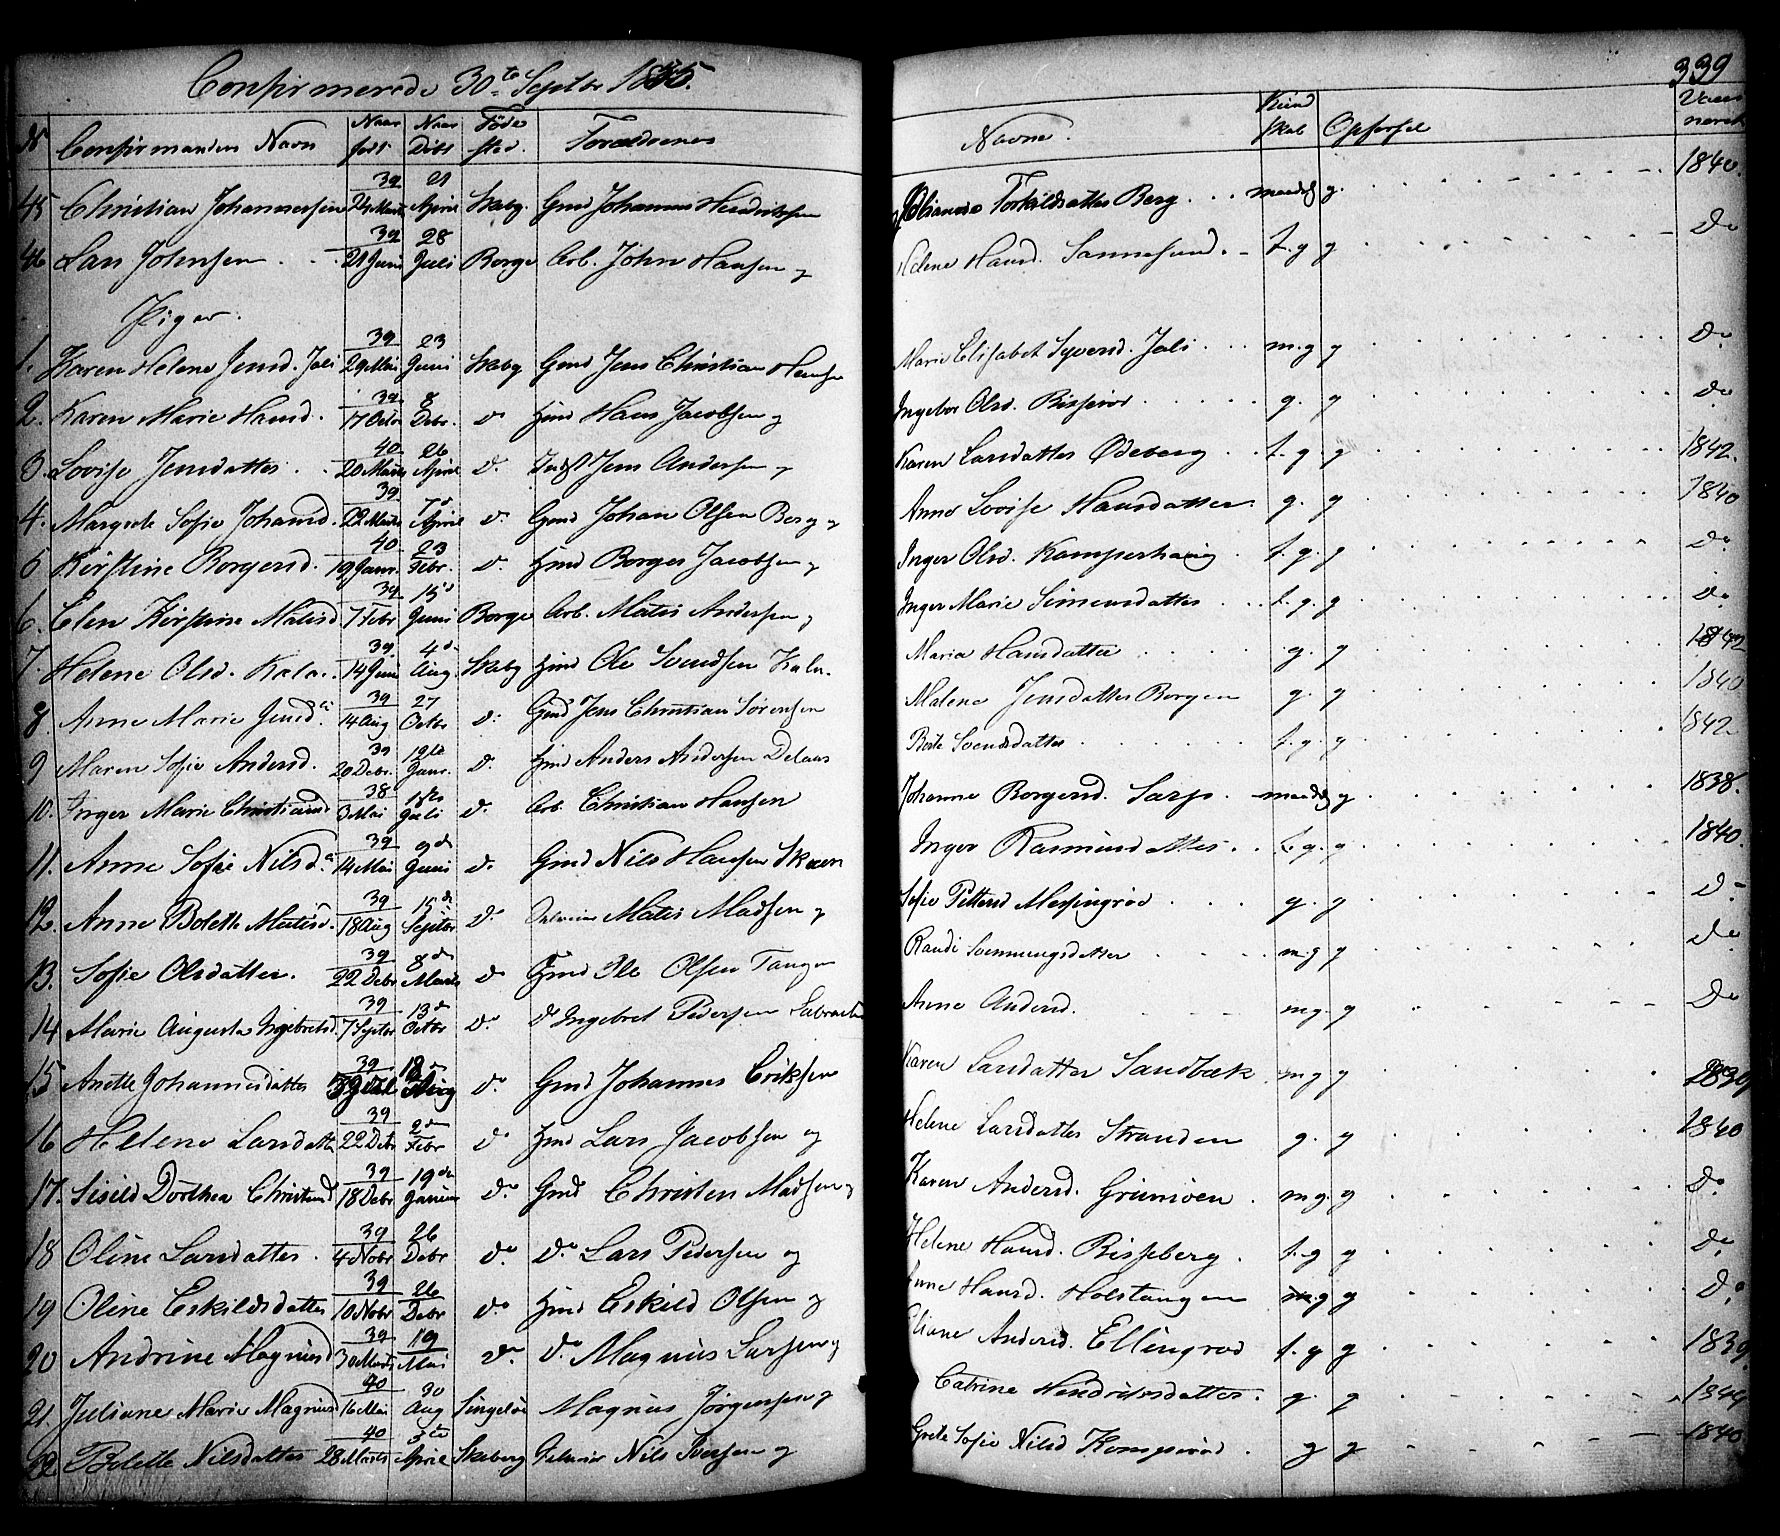 Confirmerede 30te Septbr 1855.
339
N Confirmandens Navn Naar født Naar Døbt Føde sted. Forældrenes Navne. Kund skab Opførsel Vacc nerede
45 Christian Johannessen 39 24 Marts 21 April Skeby. Gmd Johannes Hendriksen Torkildsatter Berg . . . maadelg g. 1840.
46 Lars Johnsen 39 21 Juni 28 Juli Borge Arb. John Hansen og Helene Hansd. Sannesund. t. g g Do
Piger.
1. Karen Helene Jensd. Jæli 39 29 Mai 23 Juni Skebg Gmd Jens Christian Hansen Marie Elisabet Syversd. Jæli . . . m.g g Do
2. Karen Marie Hansd. 39 17 Octbr 8 Debr. do Hmd Hans Jacobsen og Ingebor Olsd. g. g Do
3. Lovise Jensdatter . . 40 20 Marts 26 April do Indst Jens Andersen og Karen Larsdatter Ødeberg . . t. g. g 1842.
4. Margrete Sofie Johansd. 39 22 Marts 7d April do Gmd Johan Olsen Berg og Anne Lovise Hansdatter. g. g 1840
5 Kirstine Borgersd. 40 19 Janr. 23 Febr. do Hmd Borger Jacobsen og Inger Olsd. Kamperhaug . t. g. g Do
6. Elen Kirstine Matisd 39 7 Febr 15d Juni Borge Arb. Matis Andersen og Inger Marie Simensdatter . . . t. g. g Do
7. Helene Olsd. Kala. 39 14 Juni 4d Aug. Skebg Hmd Ole Svendsen Kala. Maria Hansdatter g. g 1842
8. Anne Marie Jensd. 39 14 Aug 27 Octbr do Gmd Jens Christian Sørensen Malene Jensdatter Borgen g. g 1840
9 Maren Sofie Andersd. 39 20 Debr. 19de Janr. do Hmd Anders Andersen Berte Svendsdatter t. g. g 1842
10. Inger Marie Christiansd 38 3 Mai 1ste Juli do Arb. Christian Hansen Johanne Borgersd. Sarp. maadelg g 1838.
11. Anne Sofie Nilsd. 39 14 Mai 9d Juni do Gmd Nils Hansen Skaaren Inger Rasmusdatter. . t. g. g 1840.
12. Anne Bolette Matisd. 39 18 Aug 15de Septbr do Matis Madsen og Sofie Pettersd Messingrød g. g Do
13. Sofie Olsdatter. 39 22 Debr 8de Marts do Hmd Ole Olsen Tangen Randi m.g g Do
14 Marie Augusta Ingebretsd. 39 7 Septbr 13d Octbr do do Ingebret Pedersen Anne Andersd. m.g. g Do
15. Anette Johannesdatter 39 Aug do Gmd Johannes Eriksen Karen Larsdatter Sandbæk . m.g g 1839
16 Helene Larsdatter 39 22 Debr 2den Febr do Hmd Lars Jacobsen og Helene Larsdatter Stranden g. g 1840
17. Sisild Dorthea Christensd 39 18 Debr 19de Januar do Gmd Christen Madsen og Karen Andersd. Grimsøen . m g. g Do
18 Oline Larsdatter . 39 4 Novbr 26 Debr do do Lars Pedersen og Helene Hansd. Risseberg . t. g g Do
19 Oline Eskildsdatter 39 10 Novbr 26 Debr do Hmd Eskild Olsen og Anne Hansd. Holstangen m.g g Do
20 Andrine Magnusd 39 30 Marts 19 Mai do do Magnus Larsen og Eliane Andersd. Ellingrød t. g g 1839
21. Juliane Marie Magnusd 40 16 Mai 30 Aug Singeløe Magnus Jørgensen og Catrine Hendriksdatter. g. g 1844
22 Bolette Nilsdatter 40 28 Marts 3die April Skeberg Nils Iversen og Grete Sofie Nilsd g g 1840.